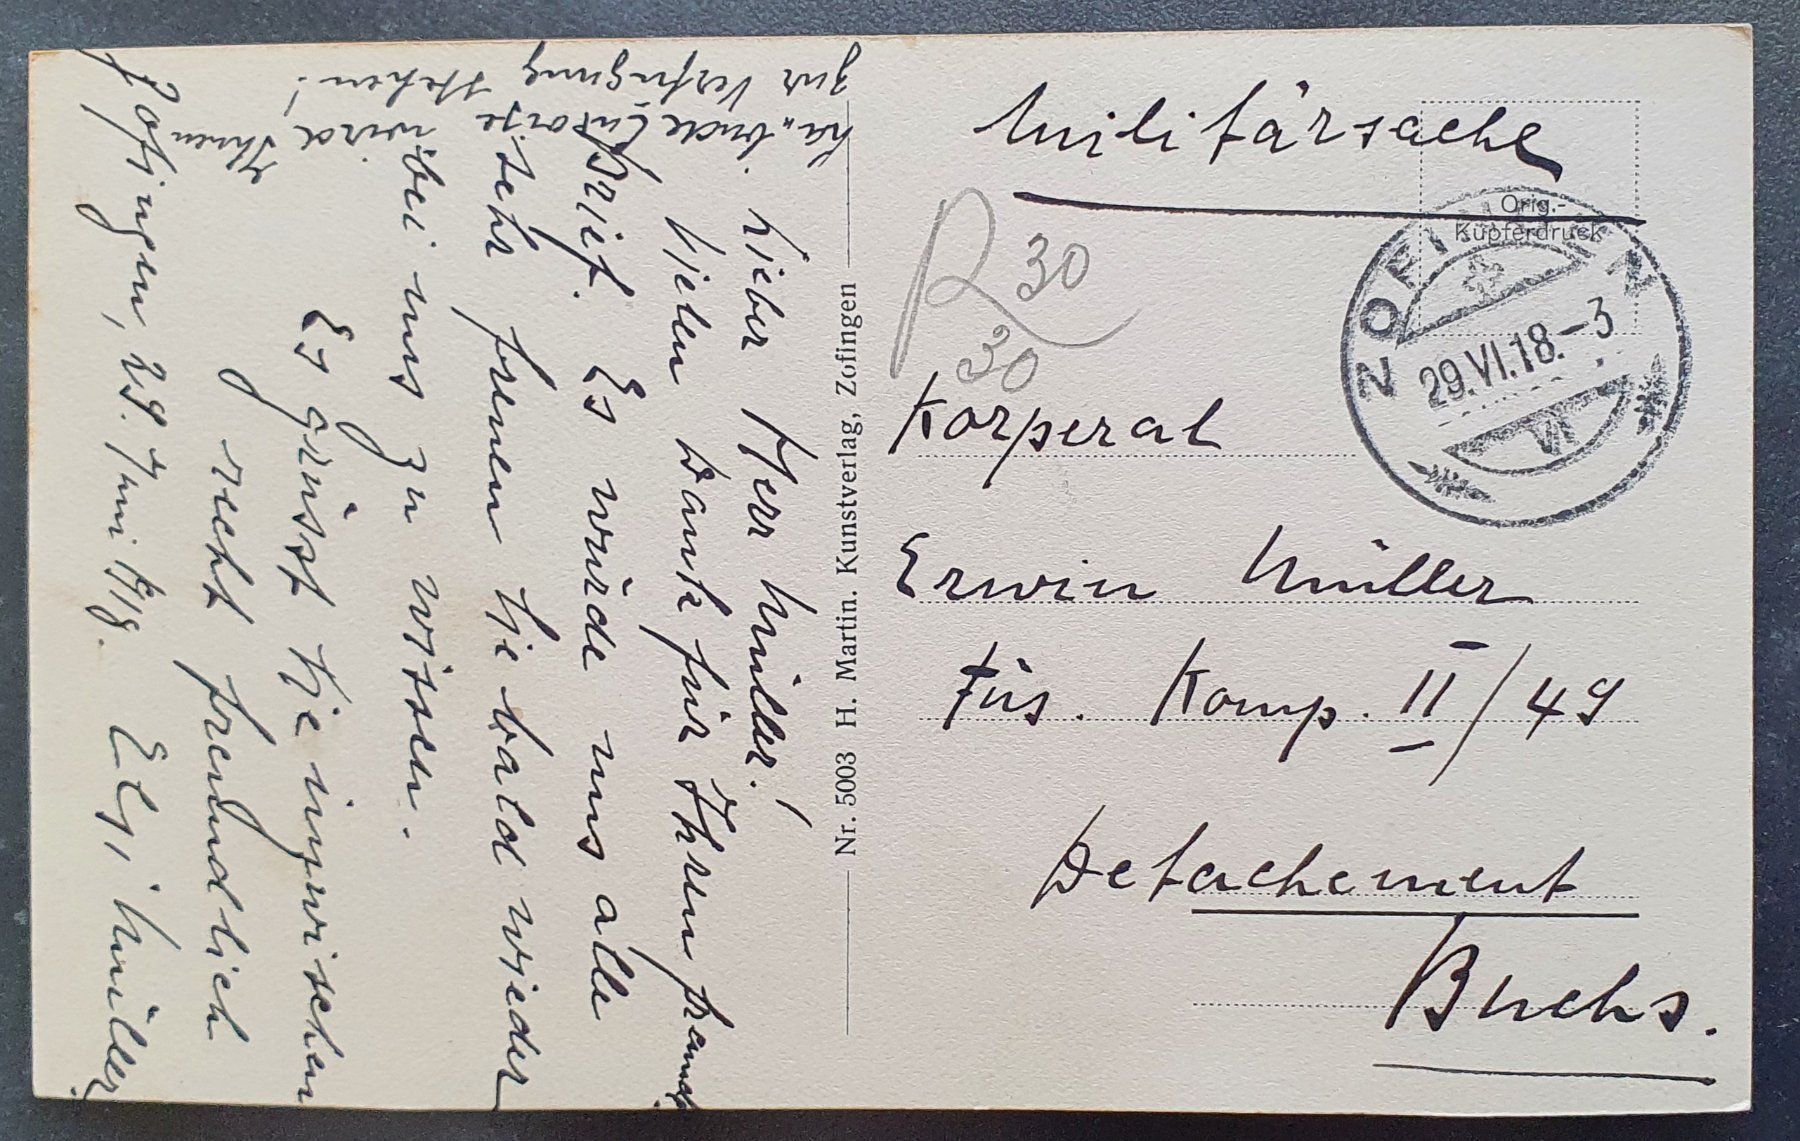 Militärsache
Orig.-
Kupferdruck
ZOFINGEN
29.VI.18.-3
VI
R 30
30
Korperal
Erwin Müller
Füs. Komp. II/49
Detachement
Buchs.
Nr. 5003 H. Martin. Kunstverlag, Zofingen
Lieber Herr Müller!
Vielen Dank für Ihren
Brief. Es würde uns alle
sehr freuen Sie bald wieder
bei uns zu wissen.
Es grüsst Sie inzwischen
recht freundlich
Zofingen, 29. Juni 1918. Elsi Müller.
wird Ihnen
zur Verfügung stehen!